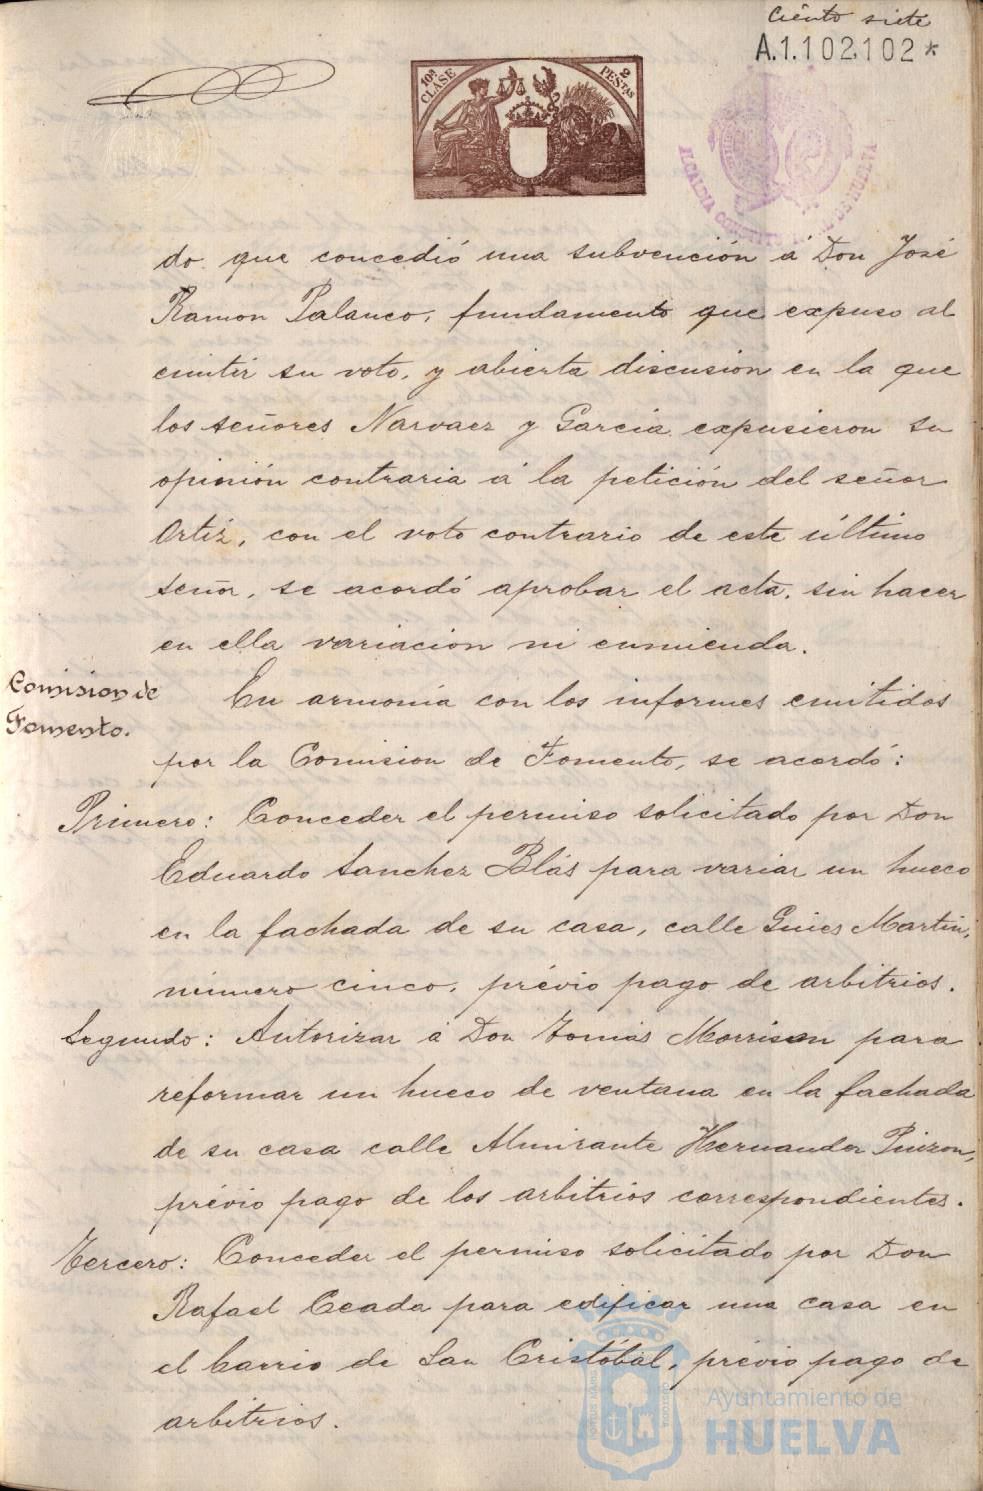 Ciento siete
A.1.102.102*
10ª CLASE
2 PESETAS
ALCALDIA CONSTITUCIONAL DE HUELVA
do que concedió una subvención á Don José
Ramon Palanco, fundamento que expuso al
emitir su voto, y abierta discusion en la que
los señores Narvaez y Garcia expusieron su
opinión contraria á la petición del señor
Ortiz, con el voto contrario de este último
señor, se acordó aprobar el acta, sin hacer
en ella variacion ni enmienda.
Comision de
Fomento.
En armonia con los informes emitidos
por la Comision de Fomento, se acordó:
Primero: Conceder el permiso solicitado por Don
Eduardo Sanchez Blás para variar un hueco
en la fachada de su casa, calle Ginés Martin,
número cinco, prévio pago de arbitrios.
Segundo: Autorizar á Don Tomás Morrison para
reformar un hueco de ventana en la fachada
de su casa calle Almirante Hernandez Pinzon,
prévio pago de los arbitrios correspondientes.
Tercero: Conceder el permiso solicitado por Don
Rafael Ceada para edificar una casa en
el barrio de San Cristóbal, prévio pago de
arbitrios.
Ayuntamiento de
HUELVA